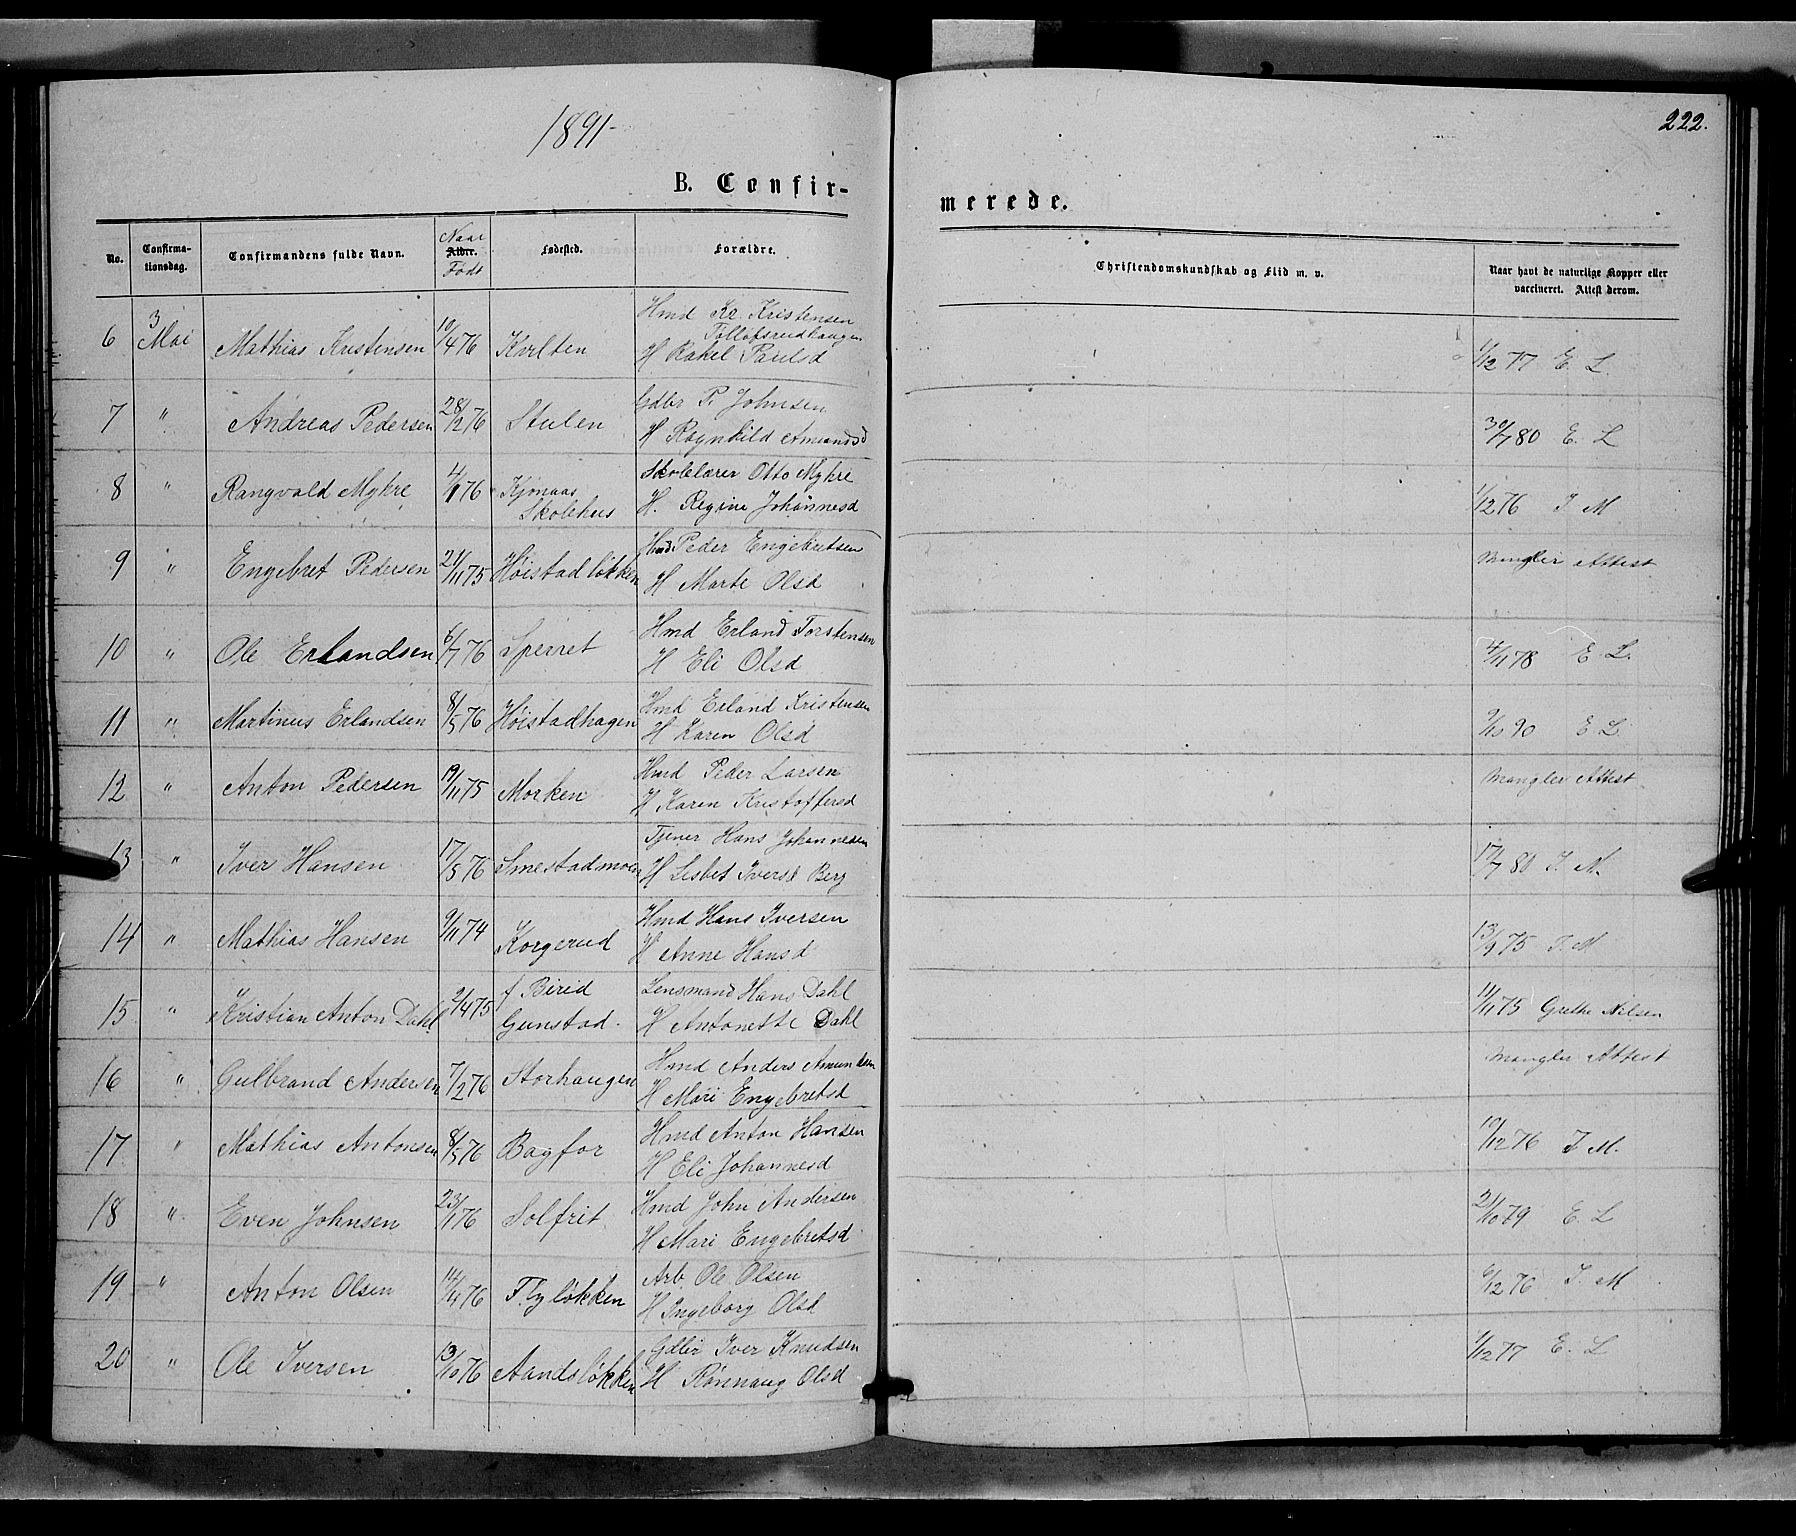 1891
222.
B. Confir-
merede.
No.
Confirma-
tionsdag.
Confirmandens fulde Navn.
Naar
Alder.
Født
Fødested.
Forældre.
Christendomskundskab og Flid m. v.
Naar havt de naturlige Kopper eller
vaccineret. Attest derom.
6 3 Mai Mathias Kristensen 10/4 76 Kvilten Hmd Kr. Kristensen
Tollofsrudhaugen
H Rakel Paulsd 1/12 77 E. L.
7 " Andreas Pedersen 28/12 76 Stulen Gdbr P. Johnsen
H Ragnhild Amundsd 30/7 80 E. L
8 " Rangvald Myhre 4/1 76 Kjønaas
Skolehus Skolelærer Otto Myhre
H. Regine Johannesd 1/12 76 J. M
9 " Engebret Pedersen 21/11 75 Høistadløkken Hmd Peder Engebretsen
H Marte Olsd Mangler Attest
10 " Ole Erlandsen 6/7 76 Sperret Hmd Erland Torstensen
H Eli Olsd 4/11 78 E L.
11 " Martinus Erlandsen 8/5 76 Høistadhagen Hmd Erland Kristensen
H Karen Olsd 9/10 90 E L
12 " Anton Pedersen 19/11 75 Morken Hmd Peder Larsen
H Karen Kristoffersd Mangler Attest
13 " Iver Hansen 17/5 76 Smestadmoen Tjener Hans Johannesen
H Lisbet Iversd Berg 17/7 80 J. M.
14 " Mathias Hansen 9/11 74 Korgerud Hmd Hans Iversen
H Anne Hansd 13/9 75 J. M
15 " Kristian Anton Dahl 2/4 75 f Birid
Gunstad. Lensmand Hans Dahl
H Antonette Dahl 11/11 75 Grethe Nilsen
16 " Gulbrand Andersen 7/2 76 Storhaugen Hmd Anders Amundsen
H Mari Engebretsd Mangler Attest
17 " Mathias Antonsen 8/5 76 Bagfor Hmd Anton Hansen
H Eli Johannesd 10/12 76 J. M.
18 " Even Johnsen 23/1 76 Solfrit Hmd John Andersen
H Mari Engebretsd 21/10 79 E. L
19 " Anton Olsen 14/4 76 Flyløkken Arb. Ole Olsen
H Ingeborg Olsd 6/12 76 J. M
20 " Ole Iversen 13/10 76 Aandsløkken Gdbr Iver Knudsen
H Rønnaug Olsd 1/12 77 E. L